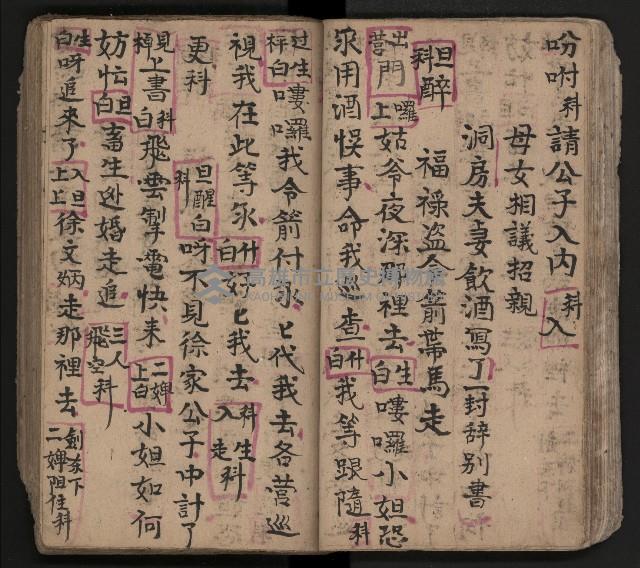 吩咐科請公子入內科入
母女相議招親
洞房夫妻飲酒寫了一封辞别書
福祿盜令箭帶馬走
旦醉科
出門囉上姑爷夜深那裡去生白嘍囉小姐恐
永用酒悞事命我巡查什白我等跟隨科
过生白嘍囉我令箭付永匕代我去各营巡
視我在此等永什白好匕我去入科生科走
更科旦醒白科呀不見徐家公子中計了
見上書科白飛雲掣電快来二婢上白小姐如何
妨忙旦白畜生迯婚走追三人飛空科
生白呀追来了入旦上徐文炳走那裡去二婢阻住科
高雄市立歷史博物館